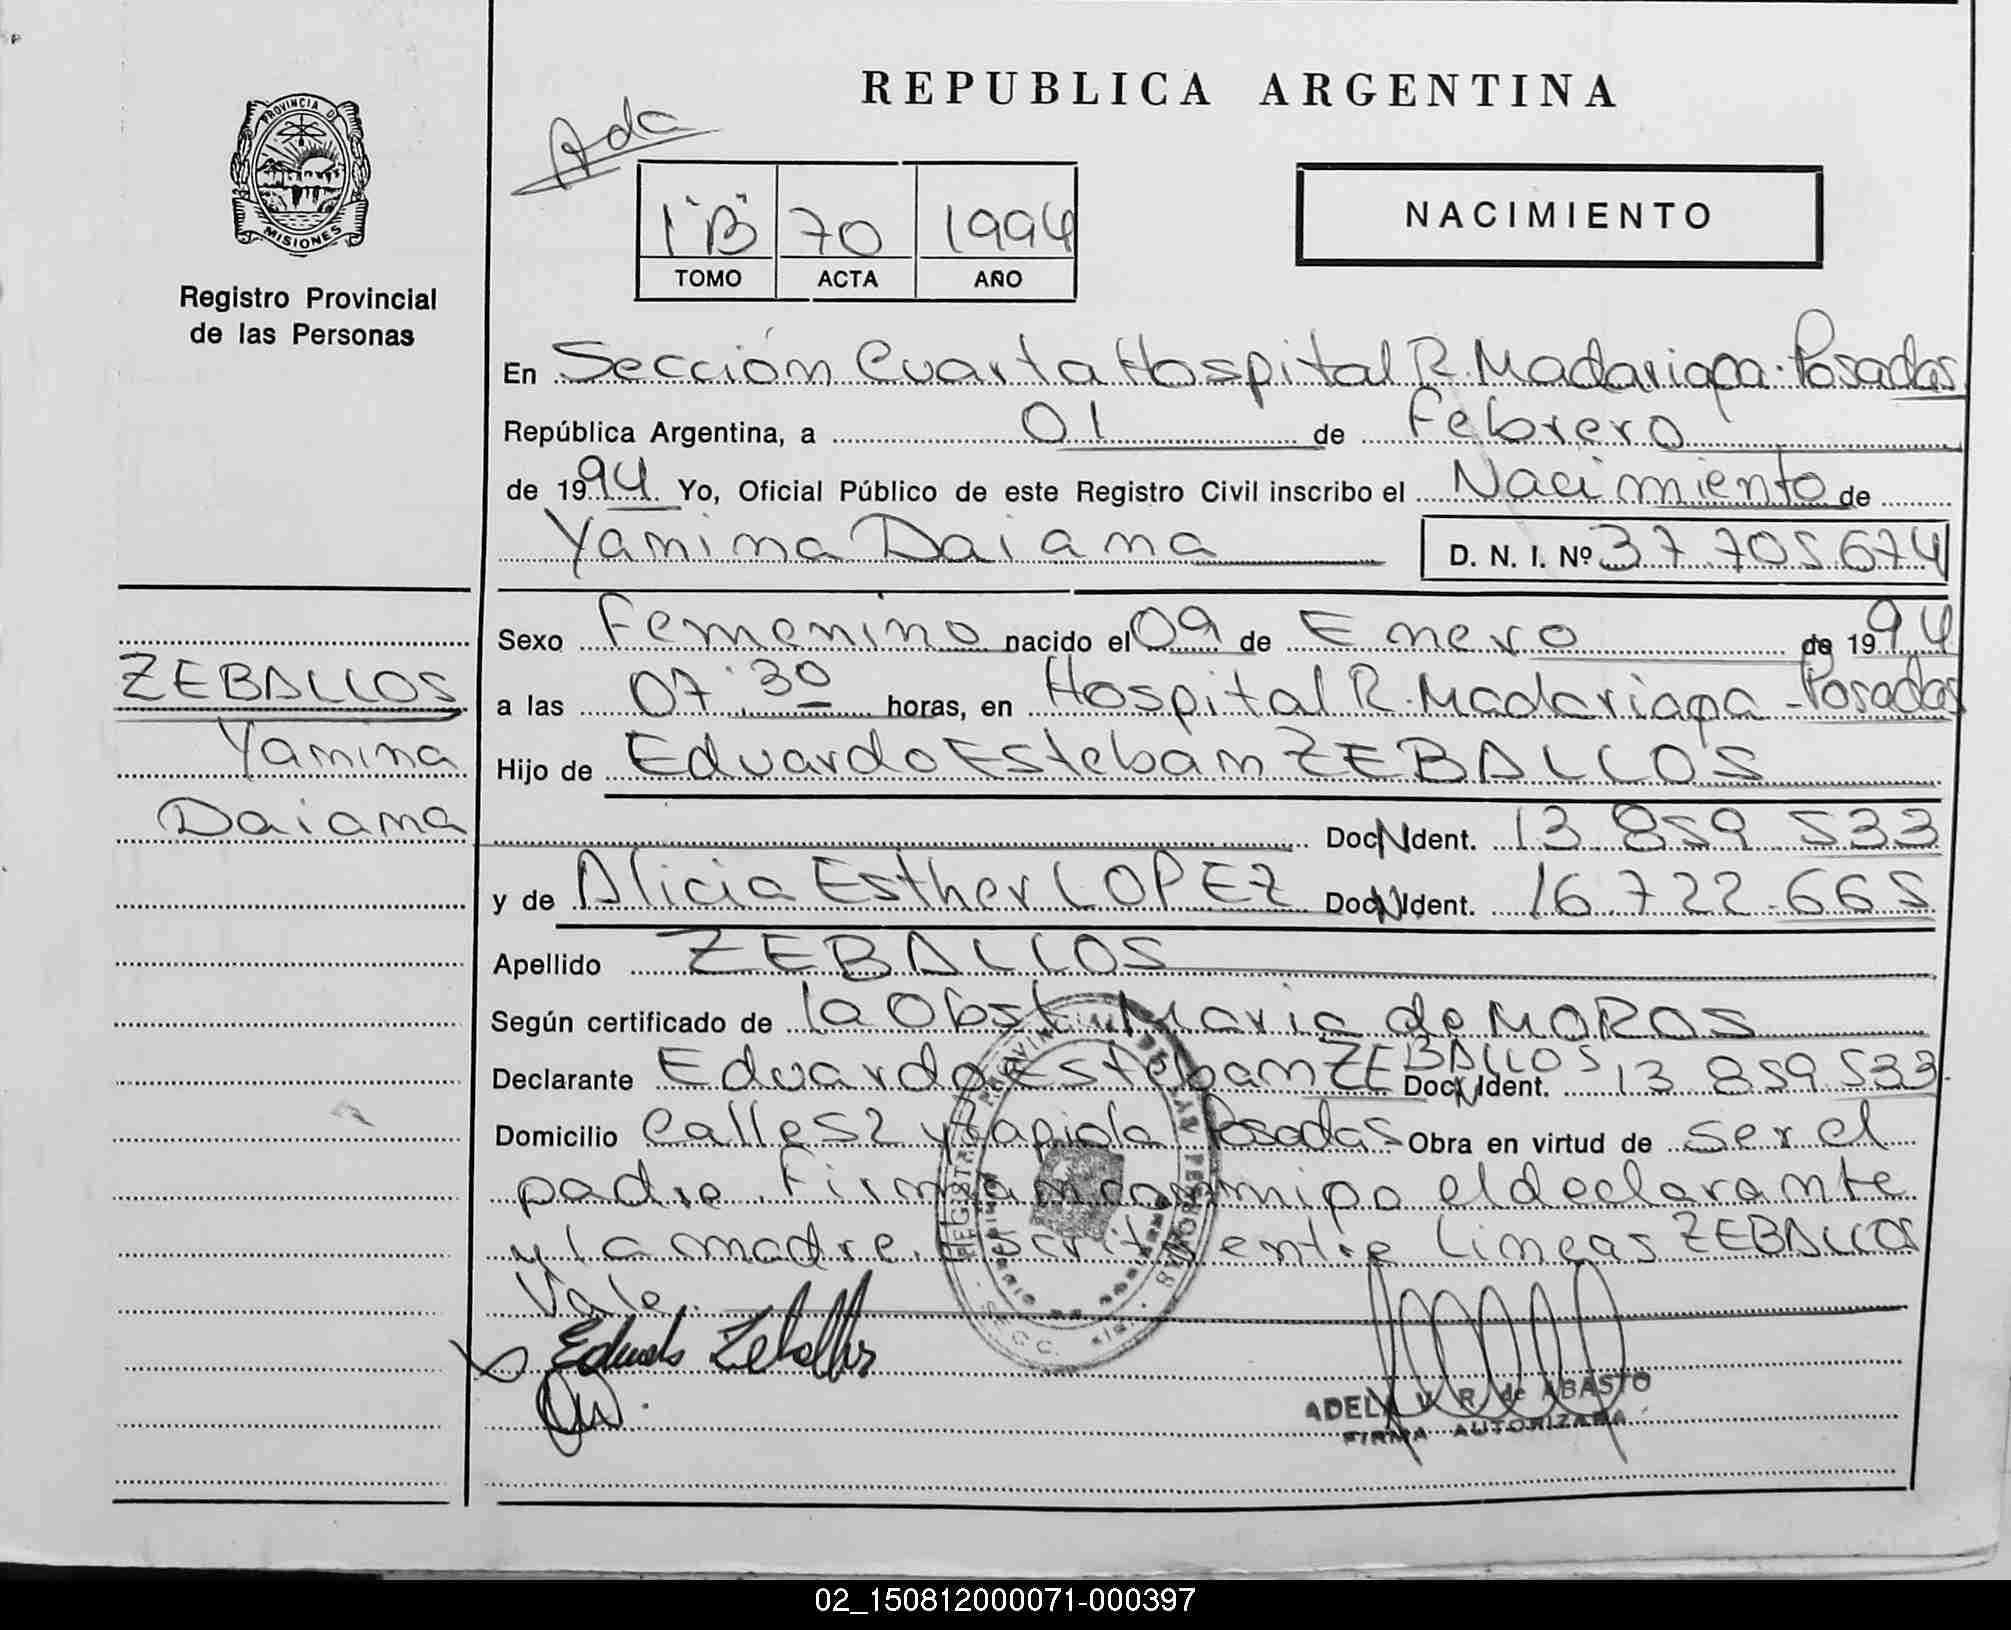 REPUBLICA ARGENTINA
Ada
PROVINCIA DE
MISIONES
Registro Provincial
de las Personas
1 "B" 70 1994
TOMO ACTA AÑO
NACIMIENTO
En Sección Cuarta Hospital R. Madariaga - Posadas
República Argentina, a 01 de Febrero
de 1994 Yo, Oficial Público de este Registro Civil inscribo el Nacimiento de
Yamina Daiana D. N. I. Nº 37.705.674
Sexo Femenino nacido el 09 de Enero de 1994
a las 07:30 horas, en Hospital R. Madariaga - Posadas
Hijo de Eduardo Esteban ZEBALLOS
Doc N Ident. 13.859.533
y de Alicia Esther LOPEZ Doc N Ident. 16.722.665
Apellido ZEBALLOS
Según certificado de la Obst. Maria de MOROS
Declarante Eduardo Esteban ZEBALLOS Doc N Ident. 13.859.533
Domicilio Calle 52 y Tapiola Posadas Obra en virtud de ser el
padre. Firman conmigo el declarante
y la madre. Escrito entre lineas ZEBALLOS
Vale.
ZEBALLOS
Yamina
Daiana
Eduardo Zeballos
ADELA V. R. de ABASTO
FIRMA AUTORIZADA
02_150812000071-000397